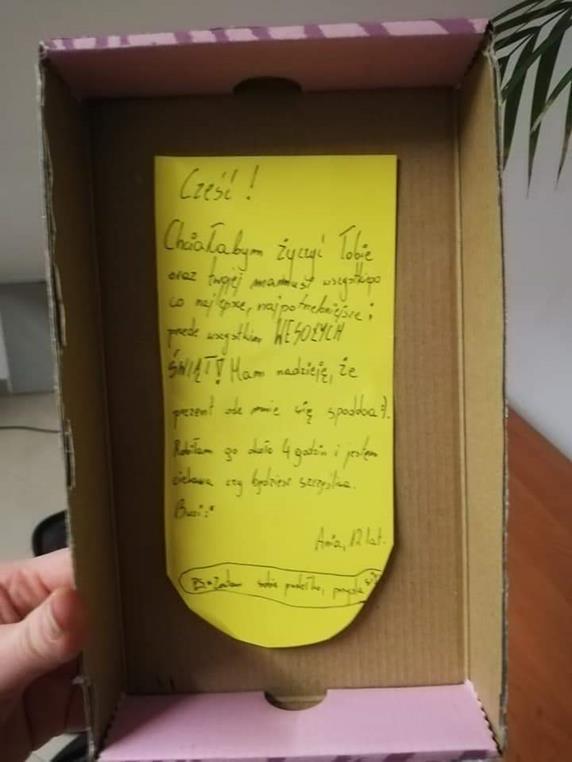 Cześć!
Chciałabym życzyć Tobie
oraz twojej mamusi wszystkiego
co najlepsze, najpotrzebniejsze i
przede wszystkim WESOŁYCH
ŚWIĄT! Mam nadzieję, że
prezent ode mnie się spodoba :).
Robiłam go około 4 godzin i jestem
ciekawa czy będziesz szczęśliwa.
Buzi :*
Ania, 12 lat.
PS. Zostaw sobie pudełko, przyda się